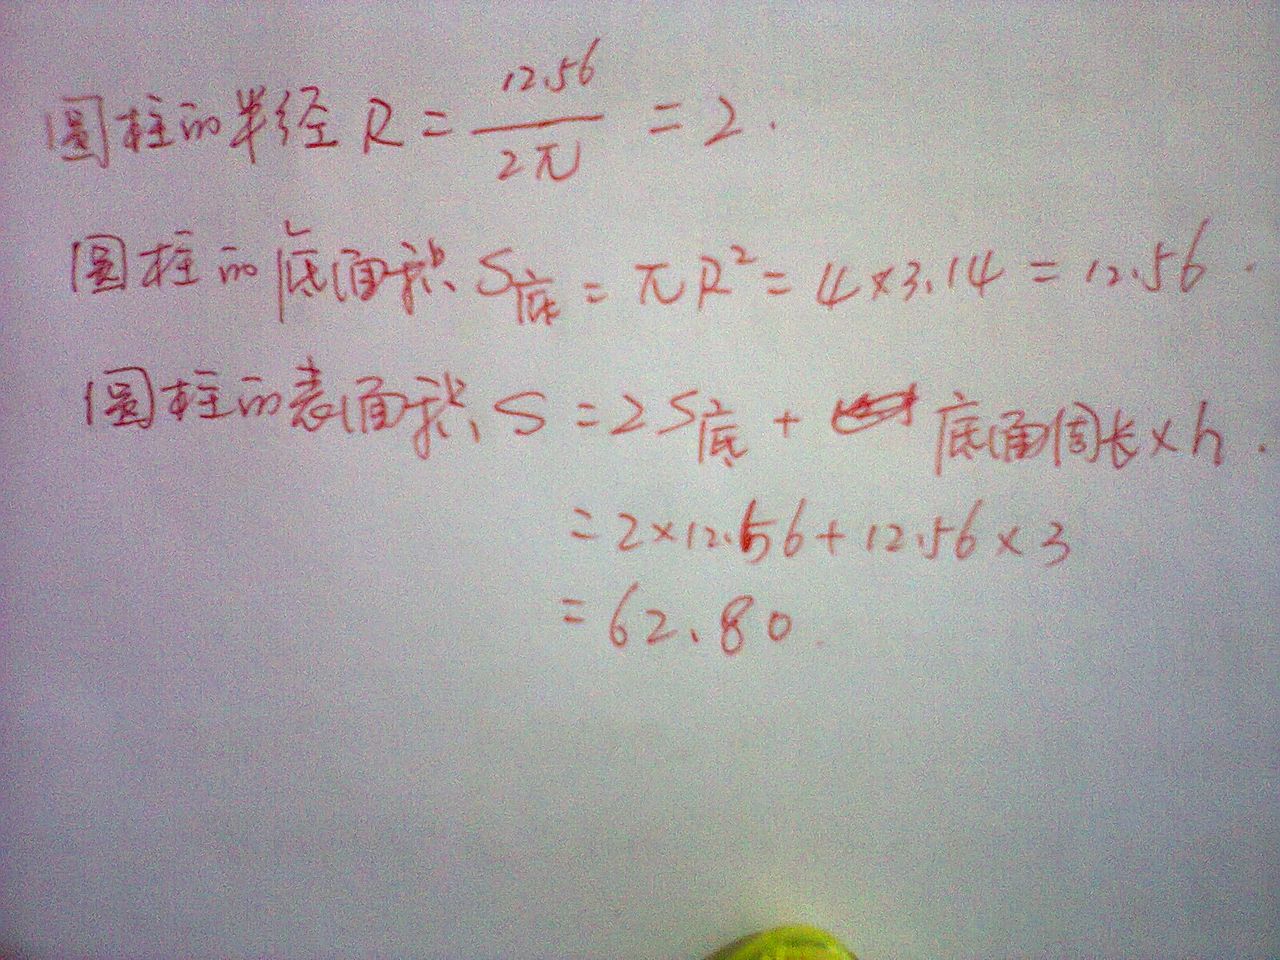 圆柱的半径 R = 12.56/2π = 2.
圆柱的底面积 S底 = πR² = 4×3.14 = 12.56.
圆柱的表面积 S = 2S底 + 底面周长×h.
= 2×12.56+12.56×3
= 62.80